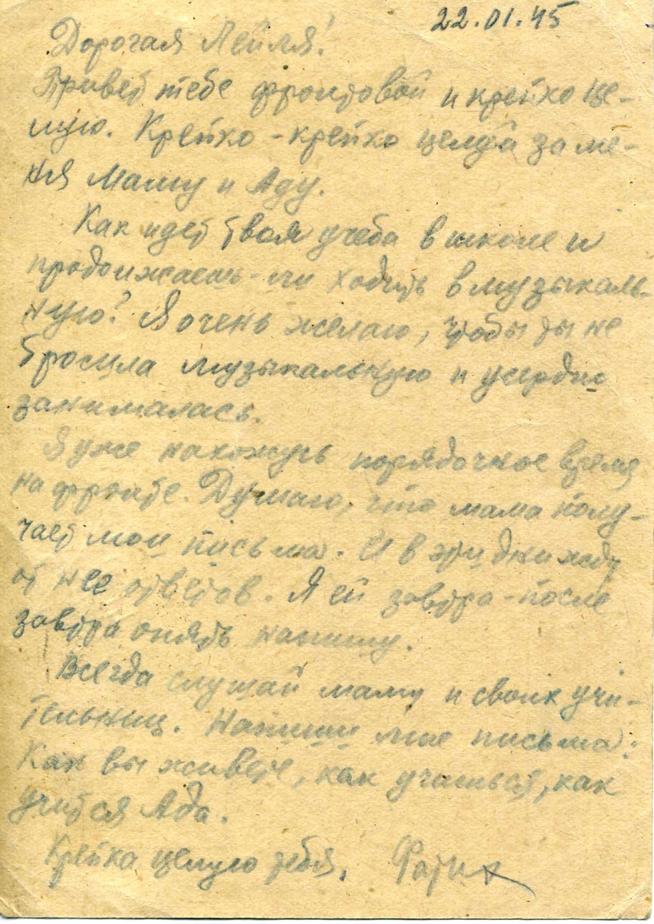 22.01.45
Дорогая Лейля!
Привет тебе фронтовой и крепко це-
лую. Крепко-крепко целуй за ме-
ня Маму и Аду.
Как идет твоя учеба в школе и
продолжаешь-ли ходить в музыкаль-
ную? Я очень желаю, чтобы ты не
бросила музыкальную и усердно
занималась.
Я уже нахожусь порядочное время
на фронте. Думаю, что мама полу-
чает мои письма. И в эти дни жду
от нее ответов. Я ей завтра-после
завтра опять напишу.
Всегда слушай маму и своих учи-
тельниц. Напиши мне письма:
Как вы живете, как учишься, как
учится Ада.
Крепко целую тебя. Фатих